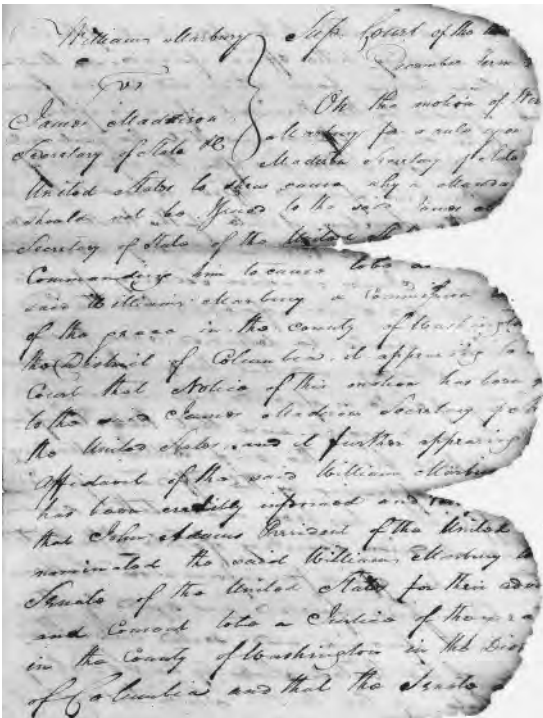 William Marbury Sup. Court of the
vs December Term
On the motion of
James Maddison Marbury for a rule
Secretary of State &c Madison Secretary of State
United States to shew cause why a Manda
should not be issued to the said James
Secretary of State of the United
Commanding him to cause to be
said William Marbury a Commission
of the peace in the county of Washington
the District of Columbia. it appearing to
Court that Notice of this motion has been
to the said James Madison Secretary of
the United States, and it further appearing
affidavit of the said William Marbu
has been credibly informed and
that John Adams President of the United
nominated the said William Marbury to
Senate of the United States for their advi
and Consent to be a Justice of the
in the County of Washington in the Dis
of Columbia and that the Senate